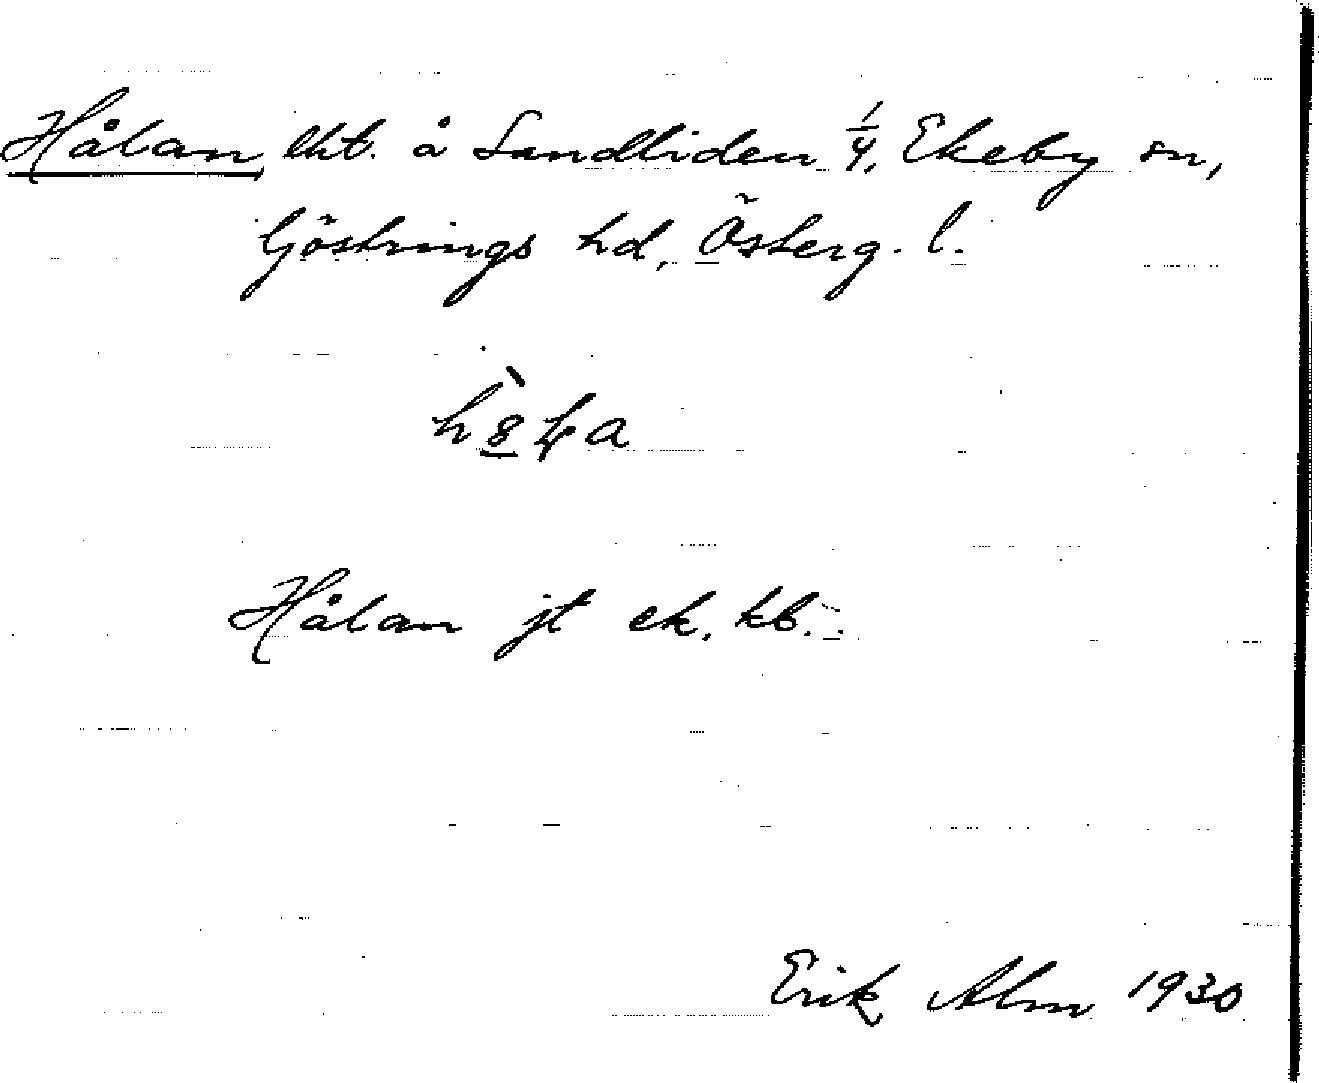 Hålan, lht. å Sandliden 1/4, Ekeby sn,
Göstrings hd, Österg. l.
Hålan jt ek. kb.
Erik Alm 1930